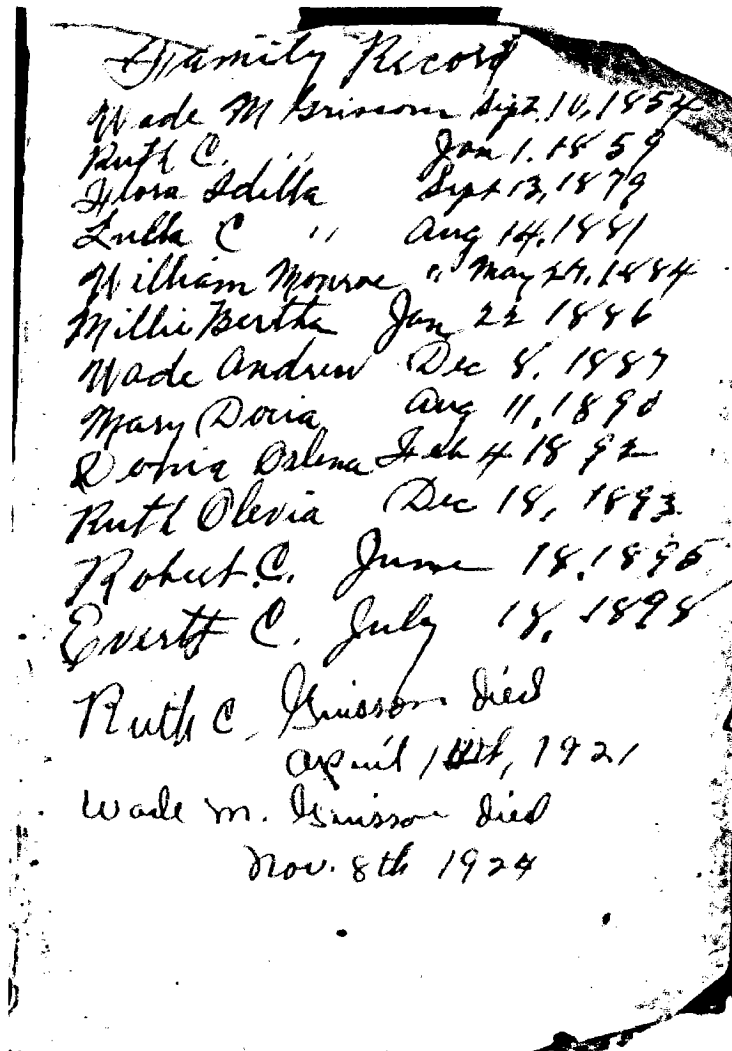 Family Record
Wade M Grissom Sept 10, 1854
Ruth C. " Jan 1. 1859
Flora Idilla Sept 13, 1879
Lulla C " Aug 14, 1881
William Monroe " May 27, 1884
Millie Bertha Jan 22 1886
Wade Andrew Dec 8, 1887
Mary Doria Aug 11, 1890
Donia Oslena Feb 4 1892
Ruth Olevia Dec 18, 1893
Robert C. June 18, 1895
Evertt C. July 18, 1898
Ruth C. Grissom died
April, 1921
Wade M. Grissom died
Nov. 8th 1924